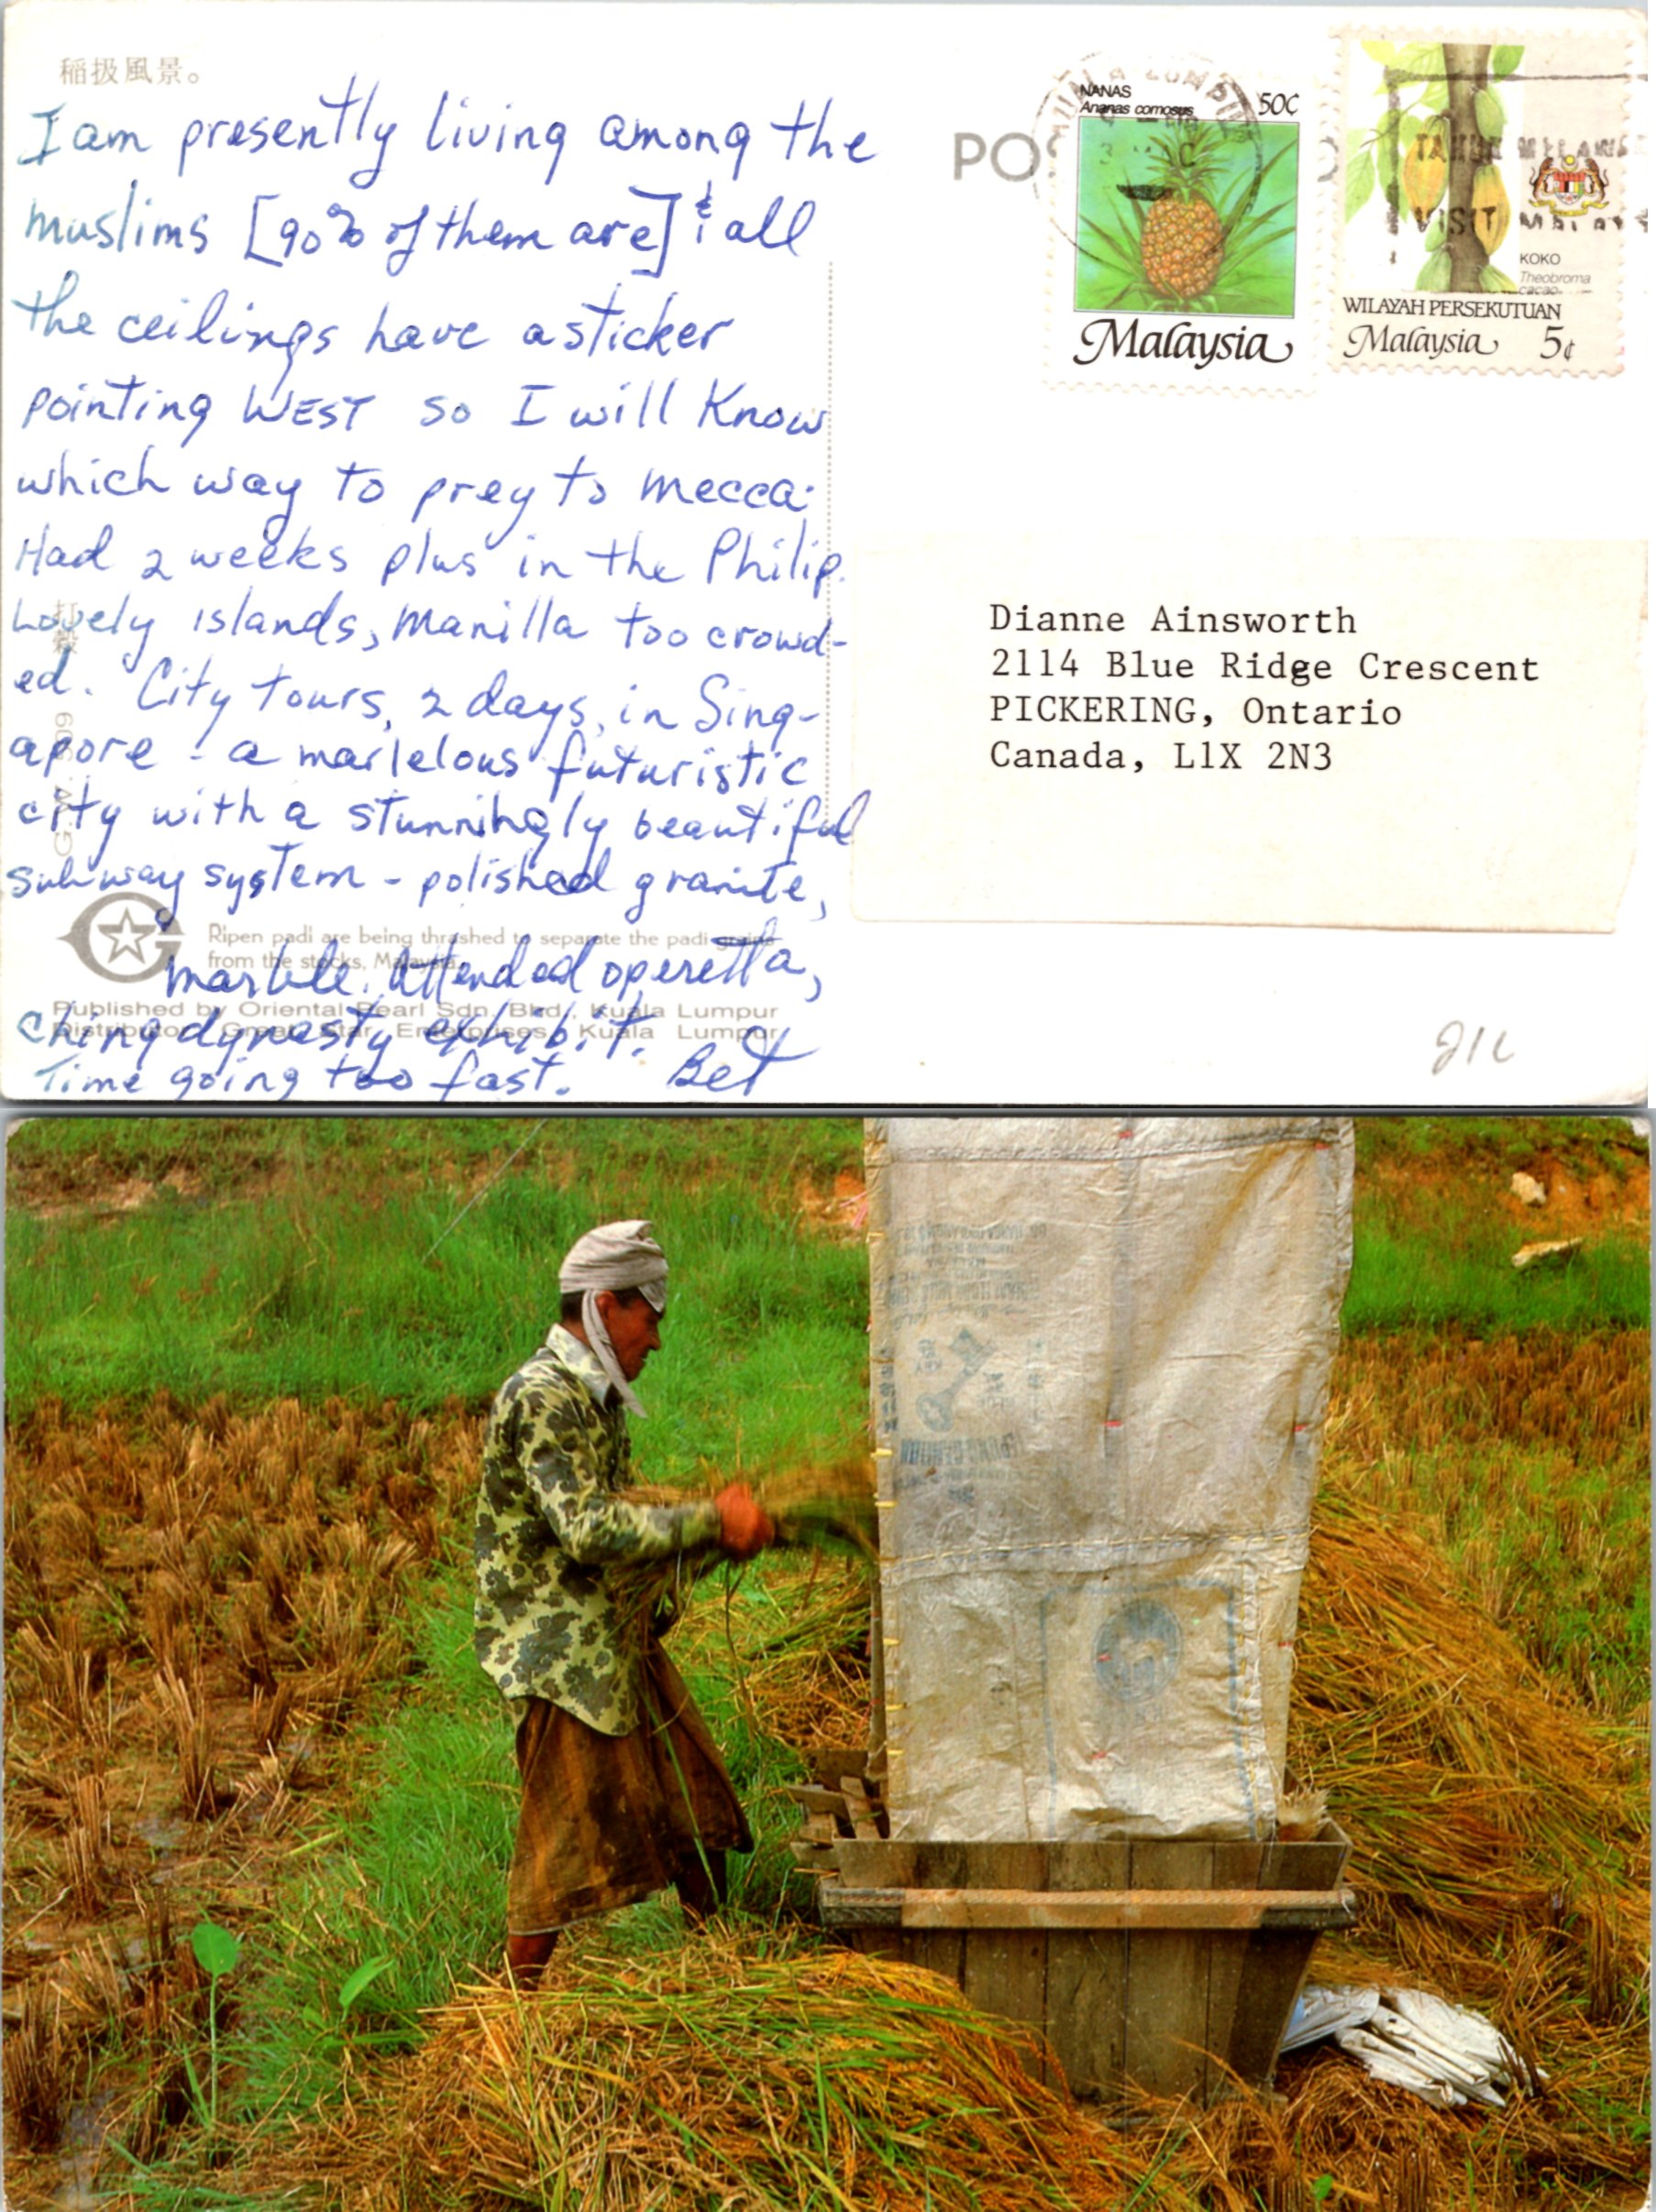 稲扱風景。
I am presently living among the
muslims [90% of them are] & all
the ceilings have a sticker
pointing WEST so I will Know
which way to prey to mecca.
Had 2 weeks plus in the Philip.
Lovely islands, Manilla too crowd-
ed. City tours, 2 days, in Sing-
apore - a marlelous futuristic
city with a stunningly beautiful
subway system - polished granite,
marble. Attended operetta,
Ching dynasty exhibit.
Time going too fast. Bet
打穀
G.W. 509
Ripen padi are being thrashed to separate the padi grains
from the stocks, Malaysia.
Published by Oriental Pearl Sdn. Bhd., Kuala Lumpur
Distributor: Great Star Enterprises, Kuala Lumpur
PO
NANAS
Ananas comosus
50¢
Malaysia
KOKO
Theobroma
cacao
WILAYAH PERSEKUTUAN
Malaysia 5¢
TAHUN MELAWA
VISIT MALAY
Dianne Ainsworth
2114 Blue Ridge Crescent
PICKERING, Ontario
Canada, L1X 2N3